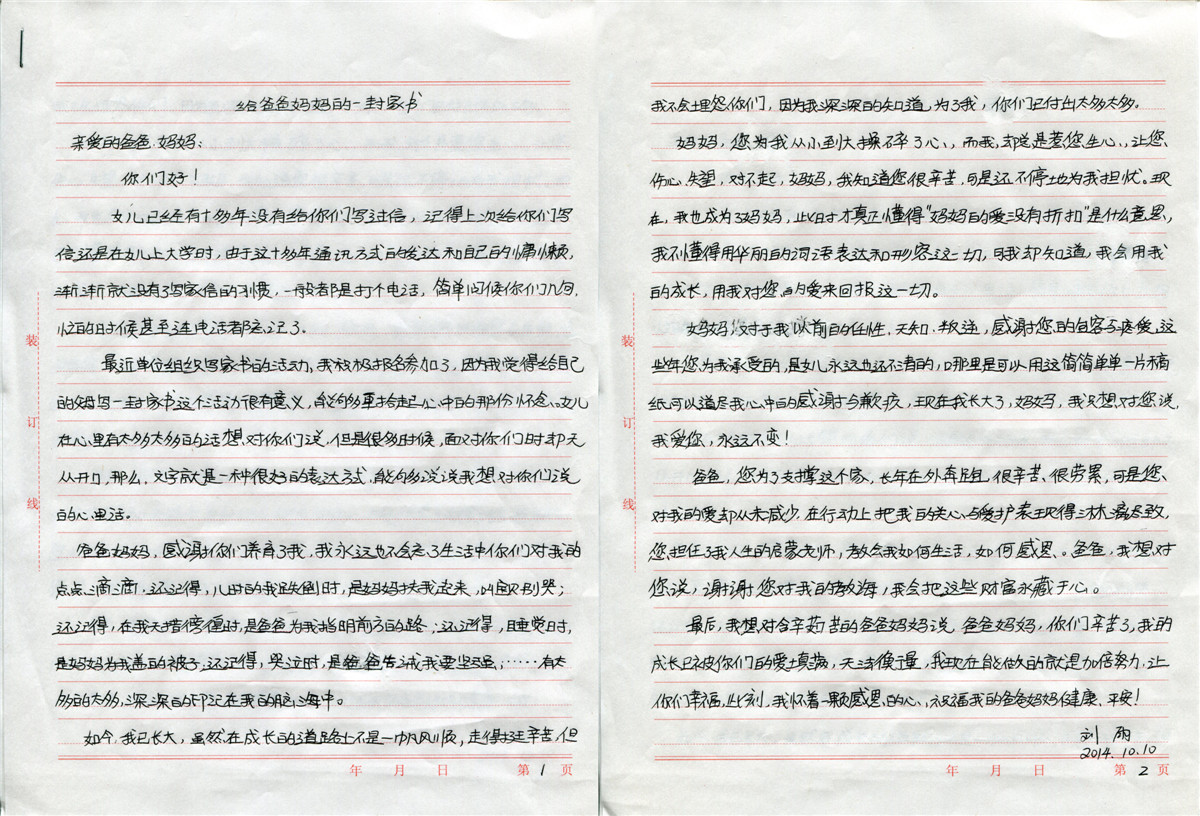 给爸爸妈妈的一封家书
亲爱的爸爸、妈妈:
你们好!
女儿已经有十多年没有给你们写过信,记得上次给你们写
信还是在女儿上大学时,由于这十多年通讯方式的发达和自己的慵懒,
渐渐就没有了写家信的习惯,一般都是打个电话,简单问候你们几句,
忙的时候甚至连电话都忘记了。
最近单位组织写家书的活动,我积极报名参加了,因为我觉得给自己
的妈写一封家书这个活动很有意义,能够多重拾起心中的那份怀念。女儿
在心里有太多太多的话想对你们说,但是很多时候,面对你们时却无
从开口,那么,文字就是一种很好的表达方式,能够多说说我想对你们说
的心里话。
爸爸妈妈,感谢你们养育了我,我永远也不会忘了生活中你们对我的
点点滴滴,还记得,儿时的我跌倒时,是妈妈扶我起来,叫宝贝别哭;
还记得,在我无措傍徨时,是爸爸为我指明前方的路;还记得,睡觉时,
是妈妈为我盖的被子;还记得,哭泣时,是爸爸告诫我要坚强;……有太
多的太多,深深的印记在我的脑海中。
如今,我已长大,虽然在成长的道路上不是一帆风顺,走得挺辛苦,但
我不会埋怨你们,因为我深深的知道,为了我,你们已付出太多太多。
妈妈,您为我从小到大操碎了心,而我,却总是惹您生心,让您
伤心、失望,对不起,妈妈,我知道您很辛苦,可是还不停地为我担忧。现
在,我也成为了妈妈,此时才真正懂得"妈妈的爱没有折扣"是什么意思,
我不懂得用华丽的词语表达和形容这一切,可我却知道,我会用我
的成长,用我对您的爱来回报这一切。
妈妈,对于我以前的任性、无知、叛逆,感谢您的包容与疼爱,这
些年您为我承受的,是女儿永远也还不清的,哪里是可以用这简简单单一片稿
纸可以道尽我心中的感谢与歉疚,现在我长大了,妈妈,我只想对您说,
我爱您,永远不变!
爸爸,您为了支撑这个家,长年在外奔跑,很辛苦、很劳累,可是您
对我的爱却从未减少,在行动上把我的关心与爱护表现得淋漓尽致,
您担任了我人生的启蒙老师,教会我如何生活,如何感恩。爸爸,我想对
您说,谢谢您对我的教诲,我会把这些财富永藏于心。
最后,我想对含辛茹苦的爸爸妈妈说,爸爸妈妈,你们辛苦了,我的
成长已被你们的爱填满,无法衡量,我现在能做的就是加倍努力,让
你们幸福,此刻,我怀着一颗感恩的心,祝福我的爸爸妈妈健康、平安!
刘雨
2014.10.10
装
订
线
年 月 日 第 1 页
装
订
线
年 月 日 第 2 页